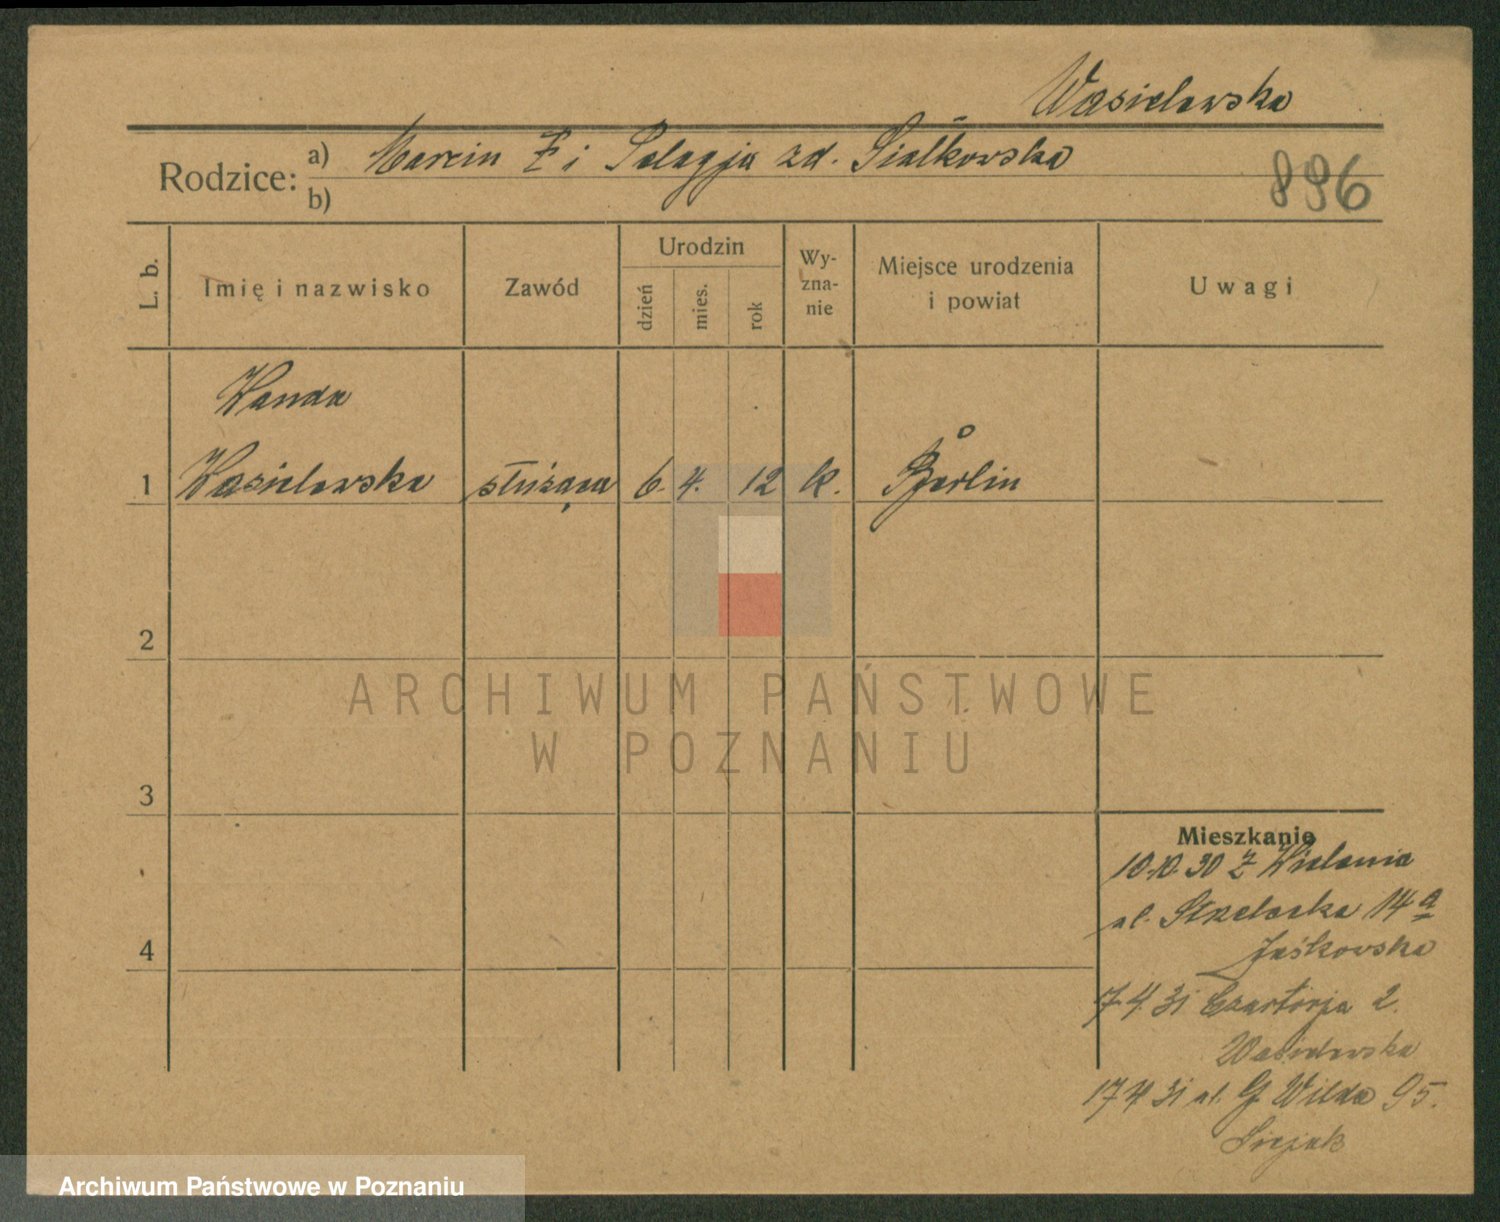 Wasielewska
Rodzice: a) Marcin i Pelagja zd. Siałkowska
b)
896
L. b.
Imię i nazwisko
Zawód
Urodzin
dzień
mies.
rok
Wy-
zna-
nie
Miejsce urodzenia
i powiat
Uwagi
Wanda
1 Wasielewska służąca 6. 4. 12 k. Berlin
2
3
4
ARCHIWUM PAŃSTWOWE
W POZNANIU
Mieszkanie
10.10.30 z Wielenia
ul. Strzelecka 14a
Jaśkowska
7.4.31 Czartorja 2.
Wasielewska
17.4.31 ul. G. Wilda 95.
Archiwum Państwowe w Poznaniu